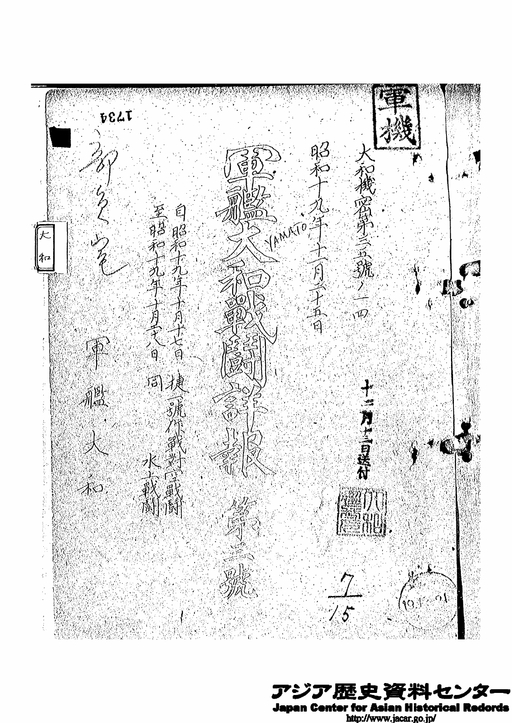 軍機
大和機密第三五號ノ一四
昭和十九年十一月二十五日
十二月十三日送付
軍艦大和戰鬪詳報 第三號
YAMATO
自昭和十九年十月十七日
至昭和十九年十月廿八日
捷一號作戰對空戰鬪
同 水上戰鬪
軍艦大和
大和
1734
7/15
アジア歴史資料センター
Japan Center for Asian Historical Records
http://www.jacar.go.jp/